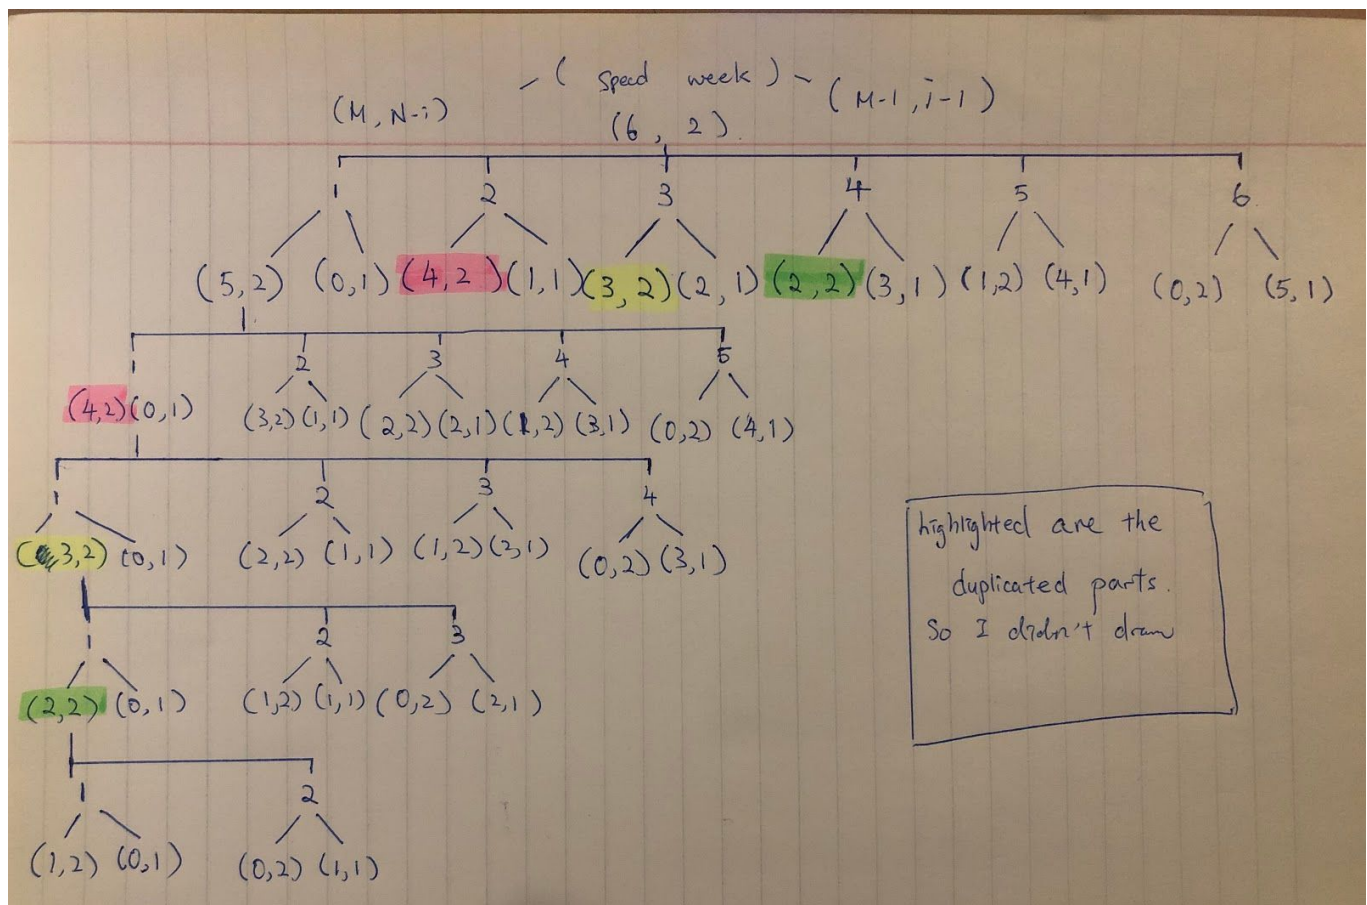 ( speed week )
(M, N-i) (M-1, i-1)
(6, 2).
1 2 3 4 5 6
(5,2) (0,1) (4,2) (1,1) (3,2) (2,1) (2,2) (3,1) (1,2) (4,1) (0,2) (5,1)
1 2 3 4 5
(4,2) (0,1) (3,2) (1,1) (2,2) (2,1) (1,2) (3,1) (0,2) (4,1)
1 2 3 4
(3,2) (0,1) (2,2) (1,1) (1,2) (2,1) (0,2) (3,1)
1 2 3
(2,2) (0,1) (1,2) (1,1) (0,2) (2,1)
1 2
(1,2) (0,1) (0,2) (1,1)
highlighted are the
duplicated parts.
So I didn't draw